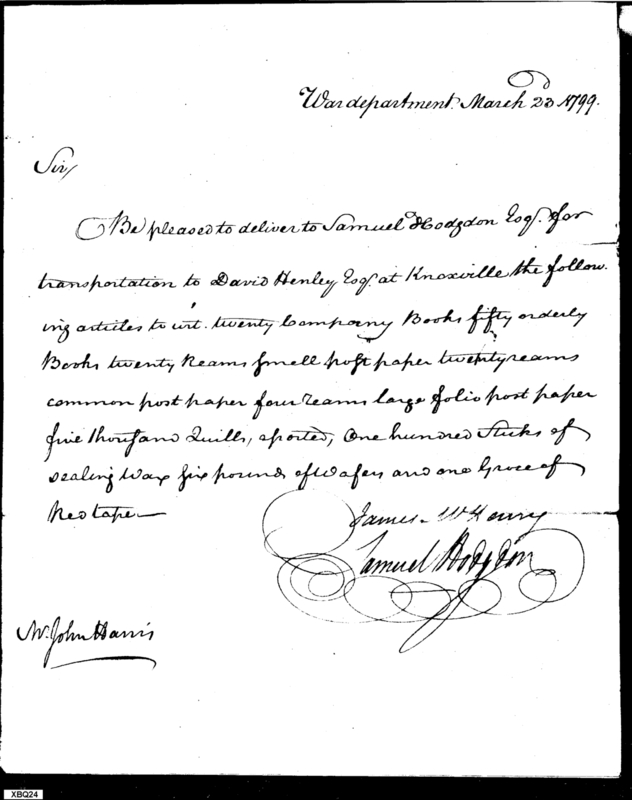 War department March 23 1799.
Sir/
Be pleased to deliver to Samuel Hodgdon Esqr. for
transportation to David Henley Esqr. at Knoxville the follow-
ing articles to wit. twenty Company Books fifty orderly
Books twenty Reams small post paper twenty reams
common post paper four reams large folio post paper
five thousand Quills, assorted, One hundred Sticks of
sealing Wax six pounds of Wafers and one Groce of
Red tape—
James McHenry
Samuel Hodgdon
Mr. John Harris
XBQ24